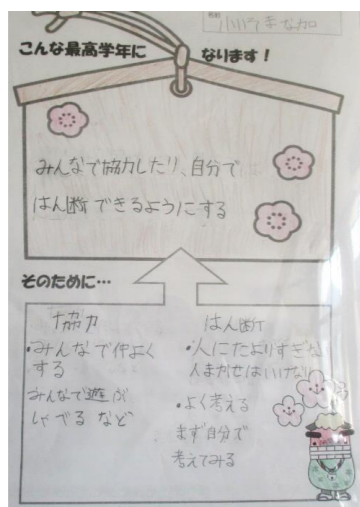 こんな最高学年に なります！
みんなで協力したり、自分で
はん断できるようにする
そのために…
協力
・みんなで仲よく
する
みんなで遊ぶ
しゃべる など
はん断
・人にたよりすぎな
人まかせはいけない
・よく考える
まず自分で
考えてみる